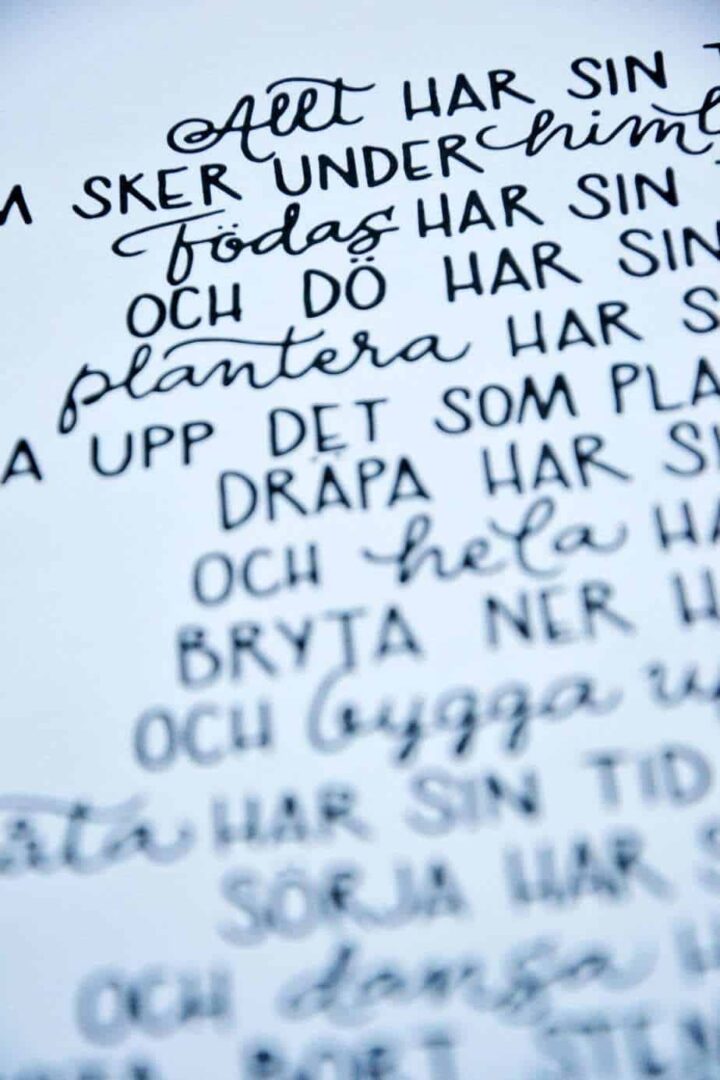 Allt HAR SIN
SKER UNDER himl
födas HAR SIN
OCH DÖ HAR SIN
plantera HAR S
A UPP DET SOM PLA
DRÄPA HAR SI
OCH hela HA
BRYTA NER H
OCH bygga u
åta HAR SIN TID
SÖRJA HAR S
OCH dansa H
BORT STEN